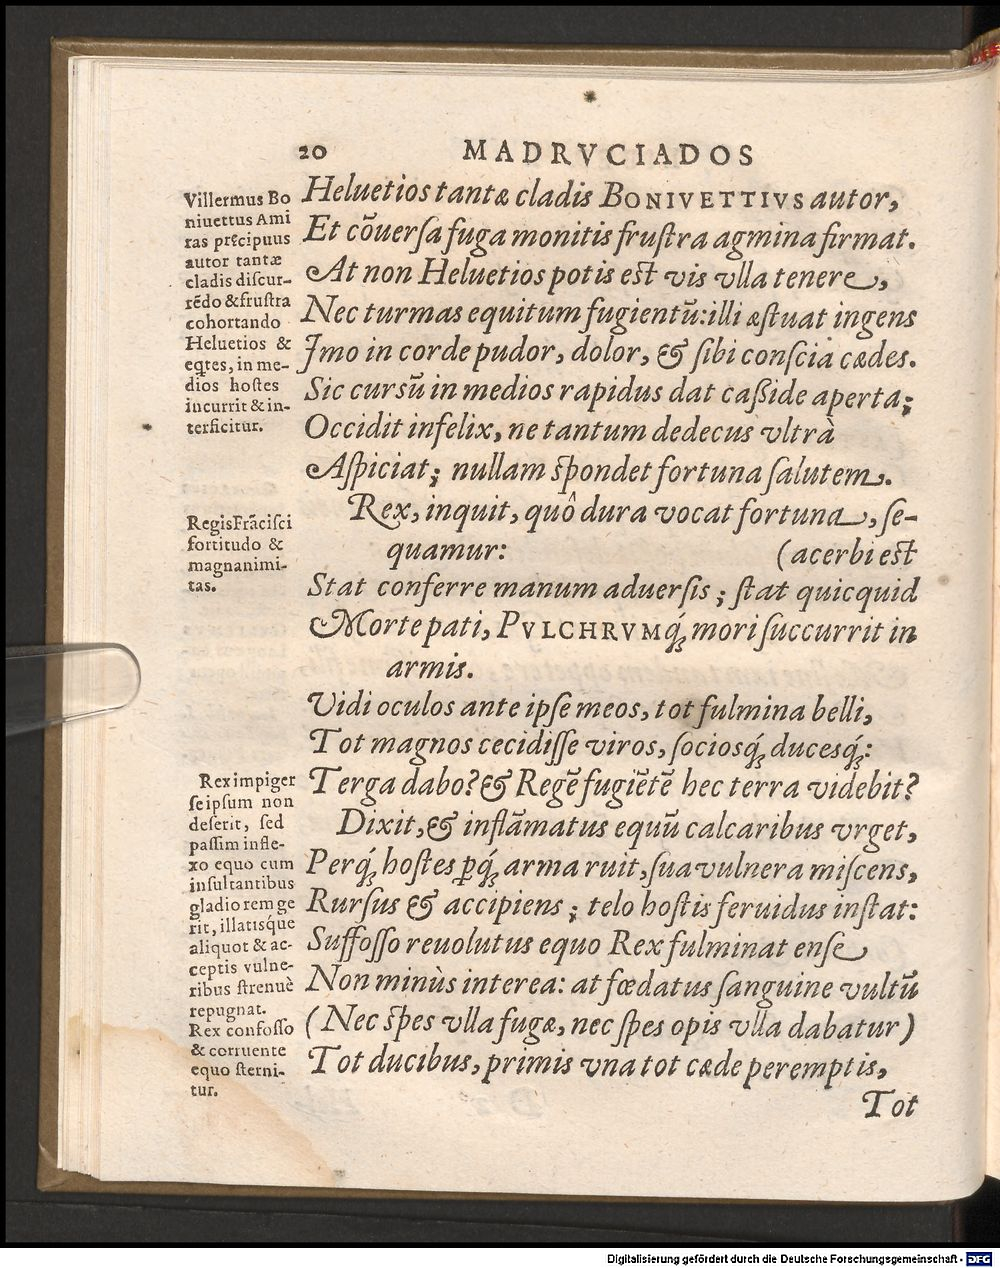 20 MADRVCIADOS
Villermus Bo
niuettus Ami
ras pręcipuus
autor tantæ
cladis diſcur-
rēdo & fruſtra
cohortando
Heluetios &
eqtes, in me-
dios hoſtes
incurrit & in-
terficitur.
Heluetios tantæ cladis BONIVETTIVS autor,
Et cōuerſa fuga monitis fruſtra agmina firmat.
At non Heluetios potis eſt vis vlla tenere,
Nec turmas equitum fugientū: illi æſtuat ingens
Imo in corde pudor, dolor, & ſibi conſcia cædes.
Sic curſū in medios rapidus dat caſſide aperta;
Occidit infelix, ne tantum dedecus vltrà
Aſpiciat; nullam ſpondet fortuna ſalutem.
Regis Frāciſci
fortitudo &
magnanimi-
tas.
Rex, inquit, quô dura vocat fortuna, ſe-
quamur: (acerbi eſt
Stat conferre manum aduerſis; ſtat quicquid
Morte pati, PVLCHRVMq́; mori ſuccurrit in
armis.
Vidi oculos ante ipſe meos, tot fulmina belli,
Tot magnos cecidiſſe viros, ſociosq́; ducesq́;:
Terga dabo? & Regē fugiētē hec terra videbit?
Rex impiger
ſeipſum non
deſerit, ſed
paſſim infle-
xo equo cum
inſultantibus
gladio rem ge
rit, illatisq́ue
aliquot & ac-
ceptis vulne-
ribus ſtrenuè
repugnat.
Dixit, & inflāmatus equū calcaribus vrget,
Perq́; hoſtes ꝑq́; arma ruit, ſua vulnera miſcens,
Rurſus & accipiens; telo hoſtis feruidus inſtat:
Suffoſſo reuolutus equo Rex fulminat enſe
Non minùs interea: at fœdatus ſanguine vultū
Rex confoſſo
& corruente
equo ſterni-
tur.
(Nec ſpes vlla fugæ, nec ſpes opis vlla dabatur)
Tot ducibus, primis vna tot cæde peremptis,
Tot
Digitalisierung gefördert durch die Deutsche Forschungsgemeinschaft - DFG